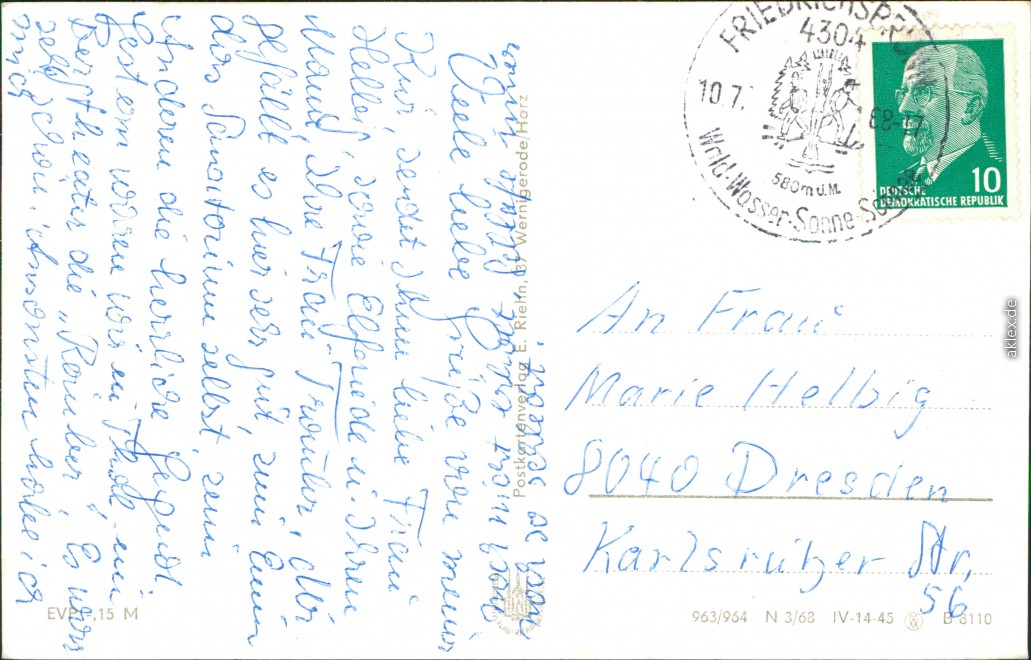 Viele liebe Grüße von meiner
Kur sendet Ihnen liebe Frau
Helbig, sowie Elfriede u. Ihrem
Mann, Ihre Frau Mir
gefällt es hier sehr gut, zum Einen
das Sanatorium selbst, zum
Anderen die herrliche Gegend.
Gestern waren wir in Thale, im
Bergtheater die „Räuber". Es war
sehr schön. Ansonsten habe ich
mich
Postkartenverlag E. Riehn, 37 Wernigerode/Harz
EVP -,15 M
FRIEDRICHSBRUNN
4304
10.7.
68-17
580 m ü. M.
Wald-Wasser-Sonne-
DEUTSCHE
DEMOKRATISCHE REPUBLIK
10
An Frau
Marie Helbig
8040 Dresden
Karlsruher Str.
56
963/964 N 3/68 IV-14-45 B 8110
aklex.de